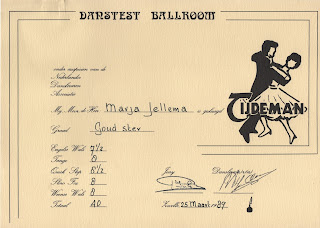 DANSTEST BALLROOM
onder auspiciën van de
Nederlandse
Dansleraren
Associatie
Marja Jellema is geslaagd
TIJDEMAN
Graad Goud ster
Engelse Wals 7½
Tango 8
Quick Step 8½
Slow Fox 8
Weense Wals 8
Totaal 40
Jury
Danslerares
25 Maart 1987